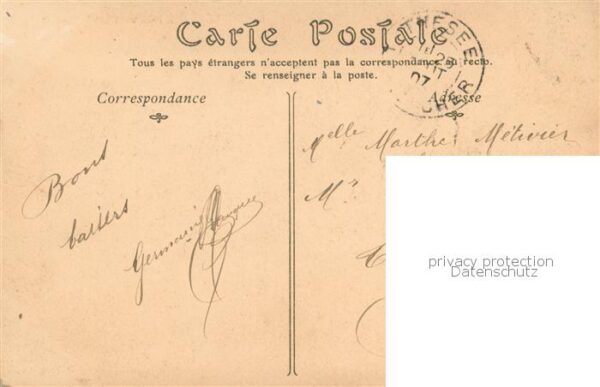 Carte Postale
Tous les pays étrangers n'acceptent pas la correspondance au recto.
Se renseigner à la poste.
THESEE
CHER
Correspondance
Adresse
Melle Marthe Métivier
Mr
Bons
baisers
Germaine
privacy protection
Datenschutz